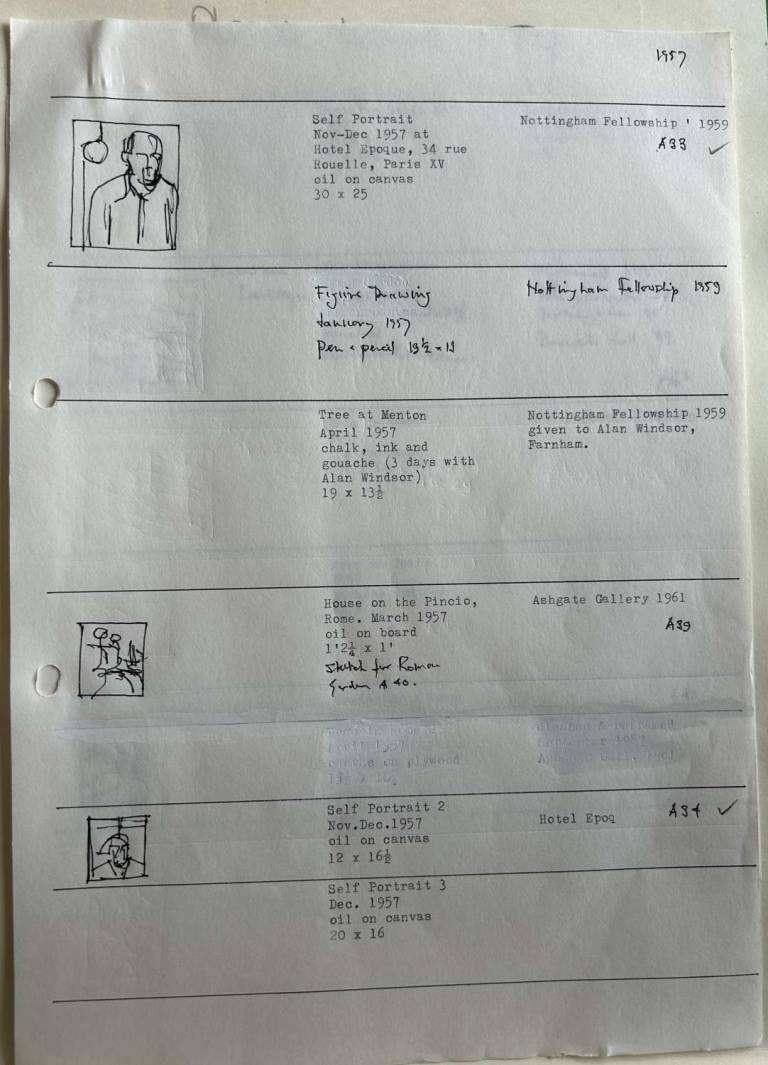 1957
Self Portrait
Nov-Dec 1957 at
Hotel Epoque, 34 rue
Rouelle, Paris XV
oil on canvas
30 x 25
Nottingham Fellowship ' 1959
A33 ✓
Figure Drawing
January 1957
Pen & pencil 19½ x 13
Nottingham Fellowship 1959
Tree at Menton
April 1957
chalk, ink and
gouache (3 days with
Alan Windsor)
19 x 13½
Nottingham Fellowship 1959
given to Alan Windsor,
Farnham.
House on the Pincio,
Rome. March 1957
oil on board
1'2¼ x 1'
sketch for Roman
Garden A 40.
Ashgate Gallery 1961
A39
April 1957
on plywood
Self Portrait 2
Nov.Dec.1957
oil on canvas
12 x 16½
Hotel Epoq
A34 ✓
Self Portrait 3
Dec. 1957
oil on canvas
20 x 16